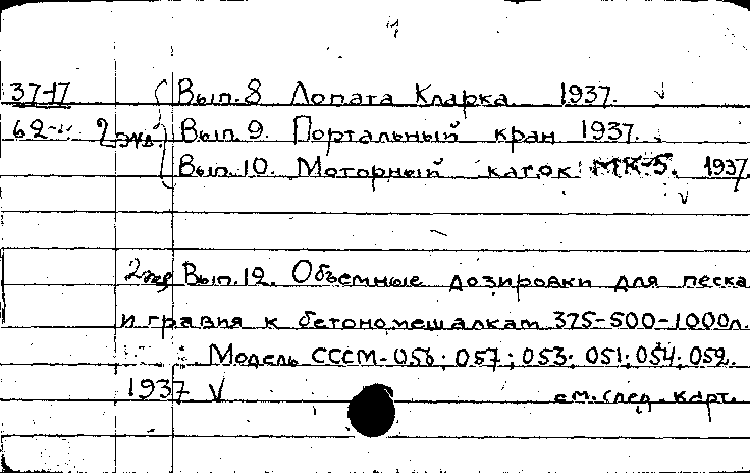 37-17 Вып. 8 Лопата Кларка 1937. V
62- 2 экз. Вып. 9. Портальный кран 1937.
Вып. 10. Моторный каток МК-5. 1937.
V
2 экз Вып. 12. Объемные дозировки для песка
и гравия к бетономешалкам 375-500-1000л.
Модель СССМ-056; 057; 053; 051; 054; 052.
1937 V см. след. карт.